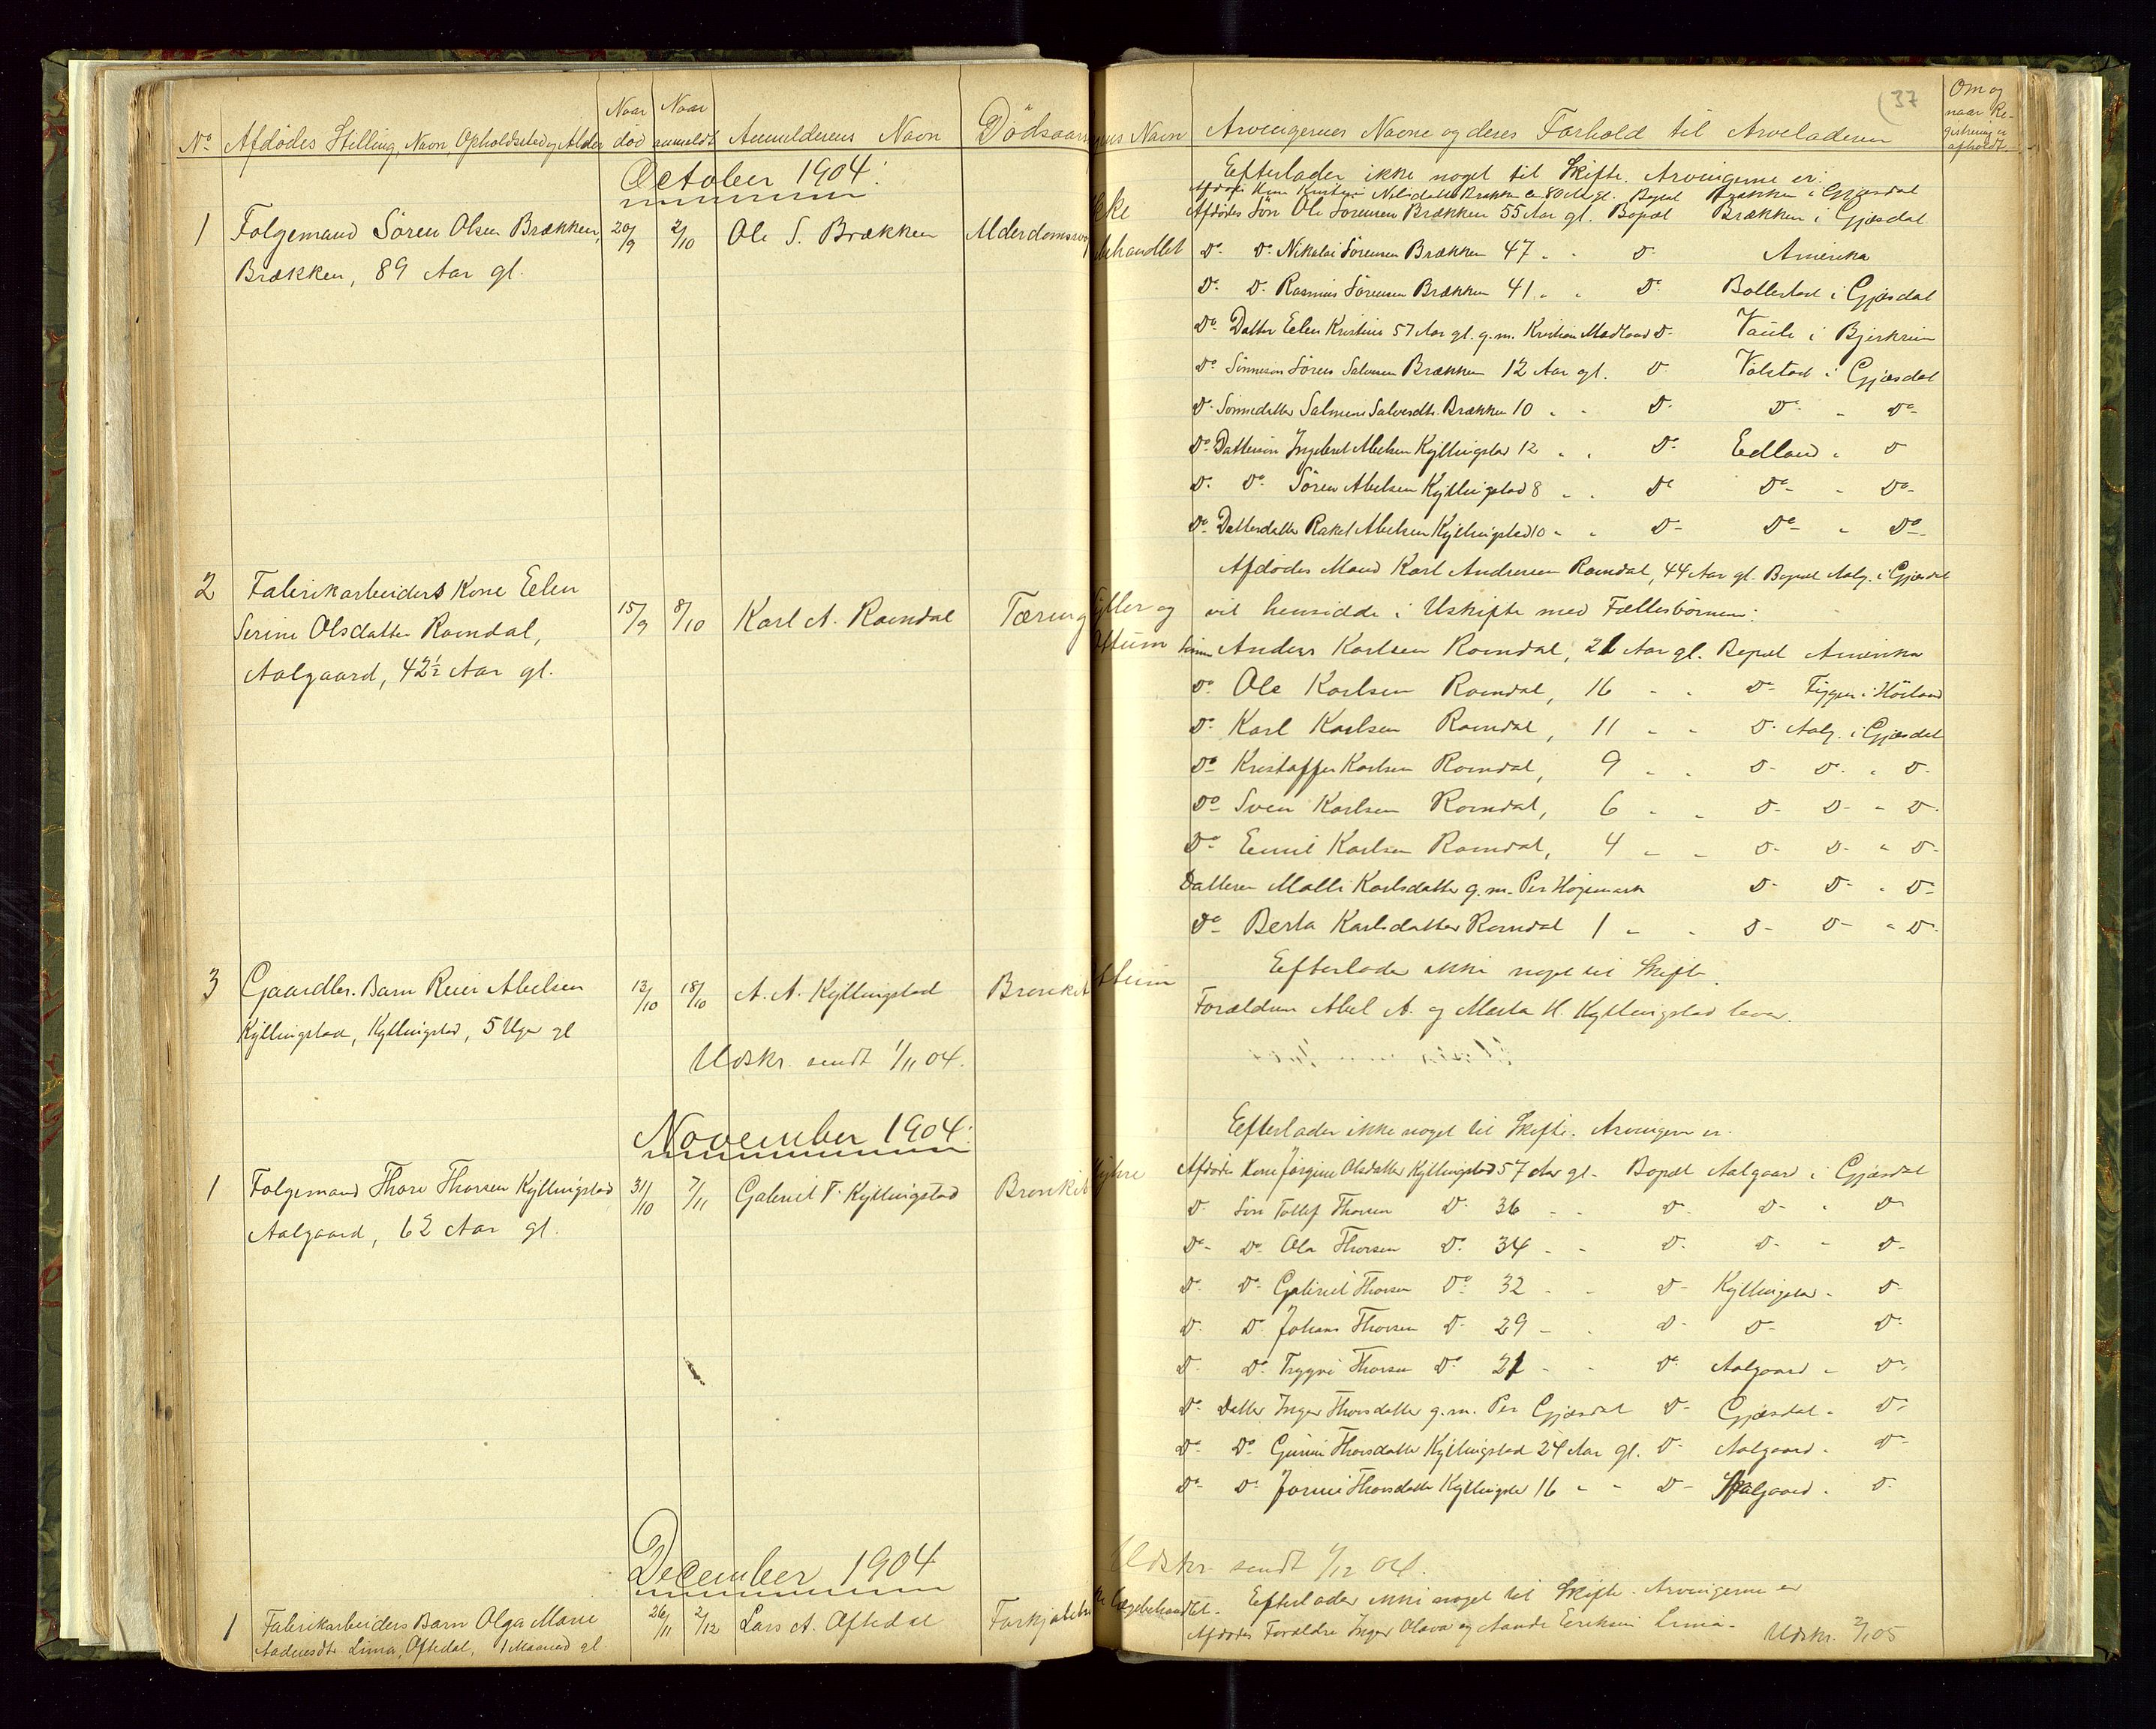 No. Afdødes Stilling, Navn Opholdssted og Alder
Naar død
Naar anmeldt
Anmelderens Navn
Dödsaarsagens Navn
October 1904.
1 Folgemand Sören Olsen Brækken, 20/9 2/10 Ole S. Brækken Alderdomssv
Brækken, 89 Aar gl.
2 Fabrikarbeiders Kone Elen
Serine Olsdatter Ramndal, 15/9 8/10 Karl A. Ramndal Tæring
Aalgaard, 42½ Aar gl.
3 Gaardbr. Barn Reier Abelsen 13/10 18/10 A. A. Kyllingstad Bronkit
Kyllingstad, Kyllingstad, 5 Uger gl
Udskr. sendt 1/11 04.
November 1904.
1 Folgemand Thore Thorsen Kyllingstad 31/10 7/11 Gabriel T. Kyllingstad Bronkit
Aalgaard, 62 Aar gl.
December 1904
1 Fabrikarbeiders Barn Olga Marie 26/11 2/12 Lars A. Oftedal
Lima, Oftedal, 1 Maaned gl.
(37
Arvingernes Navne og deres Forhold til Arveladeren
Om og naar Registrering er afholdt
Efterlader ikke noget til Skifte. Arvingerne er:
Afdødes Kone Nilsdatter Brækken 80 Aar gl. Bopæl Brækken i Gjæsdal
ikke Afdødes Sön Ole Sörensen Brækken 55 Aar gl. Bopæl Brækken i Gjæsdal
behandlet Do. Do. Nikolai Sörensen Brækken 47 " " Do. Amerika
Do. Do. Rasmus Sörensen Brækken 41 " " Do. Bollestad i Gjæsdal
Do. Datter Elen Kristine 57 Aar gl. g. m. Kristian Madland Do. i Bjerkreim
Do. Sönnesön Sören Salvesen Brækken 12 Aar gl. Do. i Gjæsdal
Do. Sönnedatter Salmine Salvesdtr. Brækken 10 " " Do. Do. " Do.
Do. Dattersön Ingebret Abelsen Kyllingstad 12 " " Do. Edland " Do.
Do. Do. Sören Abelsen Kyllingstad 8 " " Do. Do. " Do.
Do. Datterdatter Rakel Abelsen Kyllingstad 10 " " Do. Do. " Do.
Afdødes Mand Karl Andresen Ramndal, 44 Aar gl. Bopæl Aalg. i Gjæsdal
og vil hensidde i Uskifte med Fællesbörnene:
Attum Sönnen Anders Karlsen Ramndal, 21 Aar gl. Bopæl Amerika
Do. Ole Karlsen Ramndal, 16 " " Do. i Höiland
Do. Karl Karlsen Ramndal, 11 " " Do. Aalg. i Gjæsdal
Do. Kristoffer Karlsen Ramndal, 9 " " Do. Do. " Do.
Do. Sven Karlsen Ramndal, 6 " " Do. Do. " Do.
Do. Emil Karlsen Ramndal, 4 " " Do. Do. " Do.
Datteren Malli Karlsdatter g. m. Per Do. Do. " Do.
Do. Berta Karlsdatter Ramndal 1 " " Do. Do. " Do.
Efterlader ikke noget til Skifte.
Attum Forældrene Abel A. og Marta H. Kyllingstad lever.
Efterlader ikke noget til Skifte. Arvingerne er.
Afdødes Kone Jörgine Olsdatter Kyllingstad 57 Aar gl. Bopæl Aalgaard i Gjæsdal
Do. Sön Tollef Thorsen Do. 36 " " Do. Do. " Do.
Do. Do. Ola Thorsen Do. 34 " " Do. Do. " Do.
Do. Do. Gabriel Thorsen Do. 32 " " Do. Kyllingstad " Do.
Do. Do. Johans Thorsen Do. 29 " " Do. Do. Do.
Do. Do. Trygve Thorsen Do. 21 " " Do. Aalgaard " Do.
Do. Datter Inger Thorsdatter g. m. Per Gjæsdal Do. Gjæsdal " Do.
Do. Do. Gurine Thorsdatter Kyllingstad 24 Aar gl. Do. Aalgaard " Do.
Do. Do. Thorsdatter Kyllingstad 16 " " Do. Aalgaard " Do.
Udskr. sendt 1/12 04.
Lægebehandlet. Efterlader ikke noget til Skifte. Arvingerne er
Afdødes Forældre Inger Olava og Aande Eriksen Lima. Udskr. 2/1 05